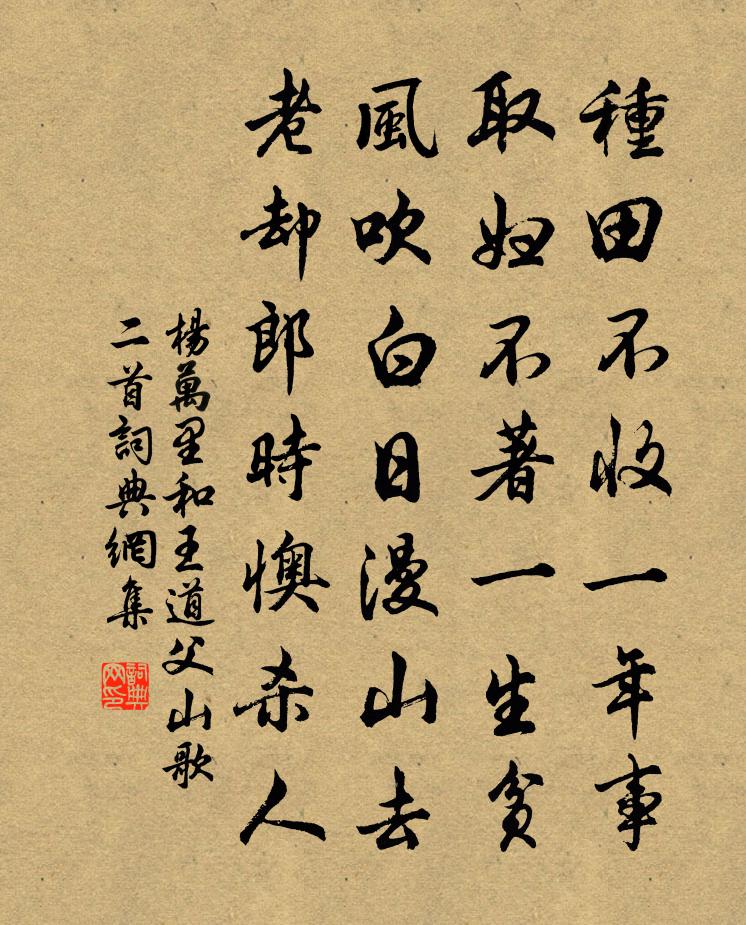 種田不收一年事
取婦不著一生貧
風吹白日漫山去
老却郎時懊杀人
楊萬里和王道父山歌
二首詞典網集
詞典
网印